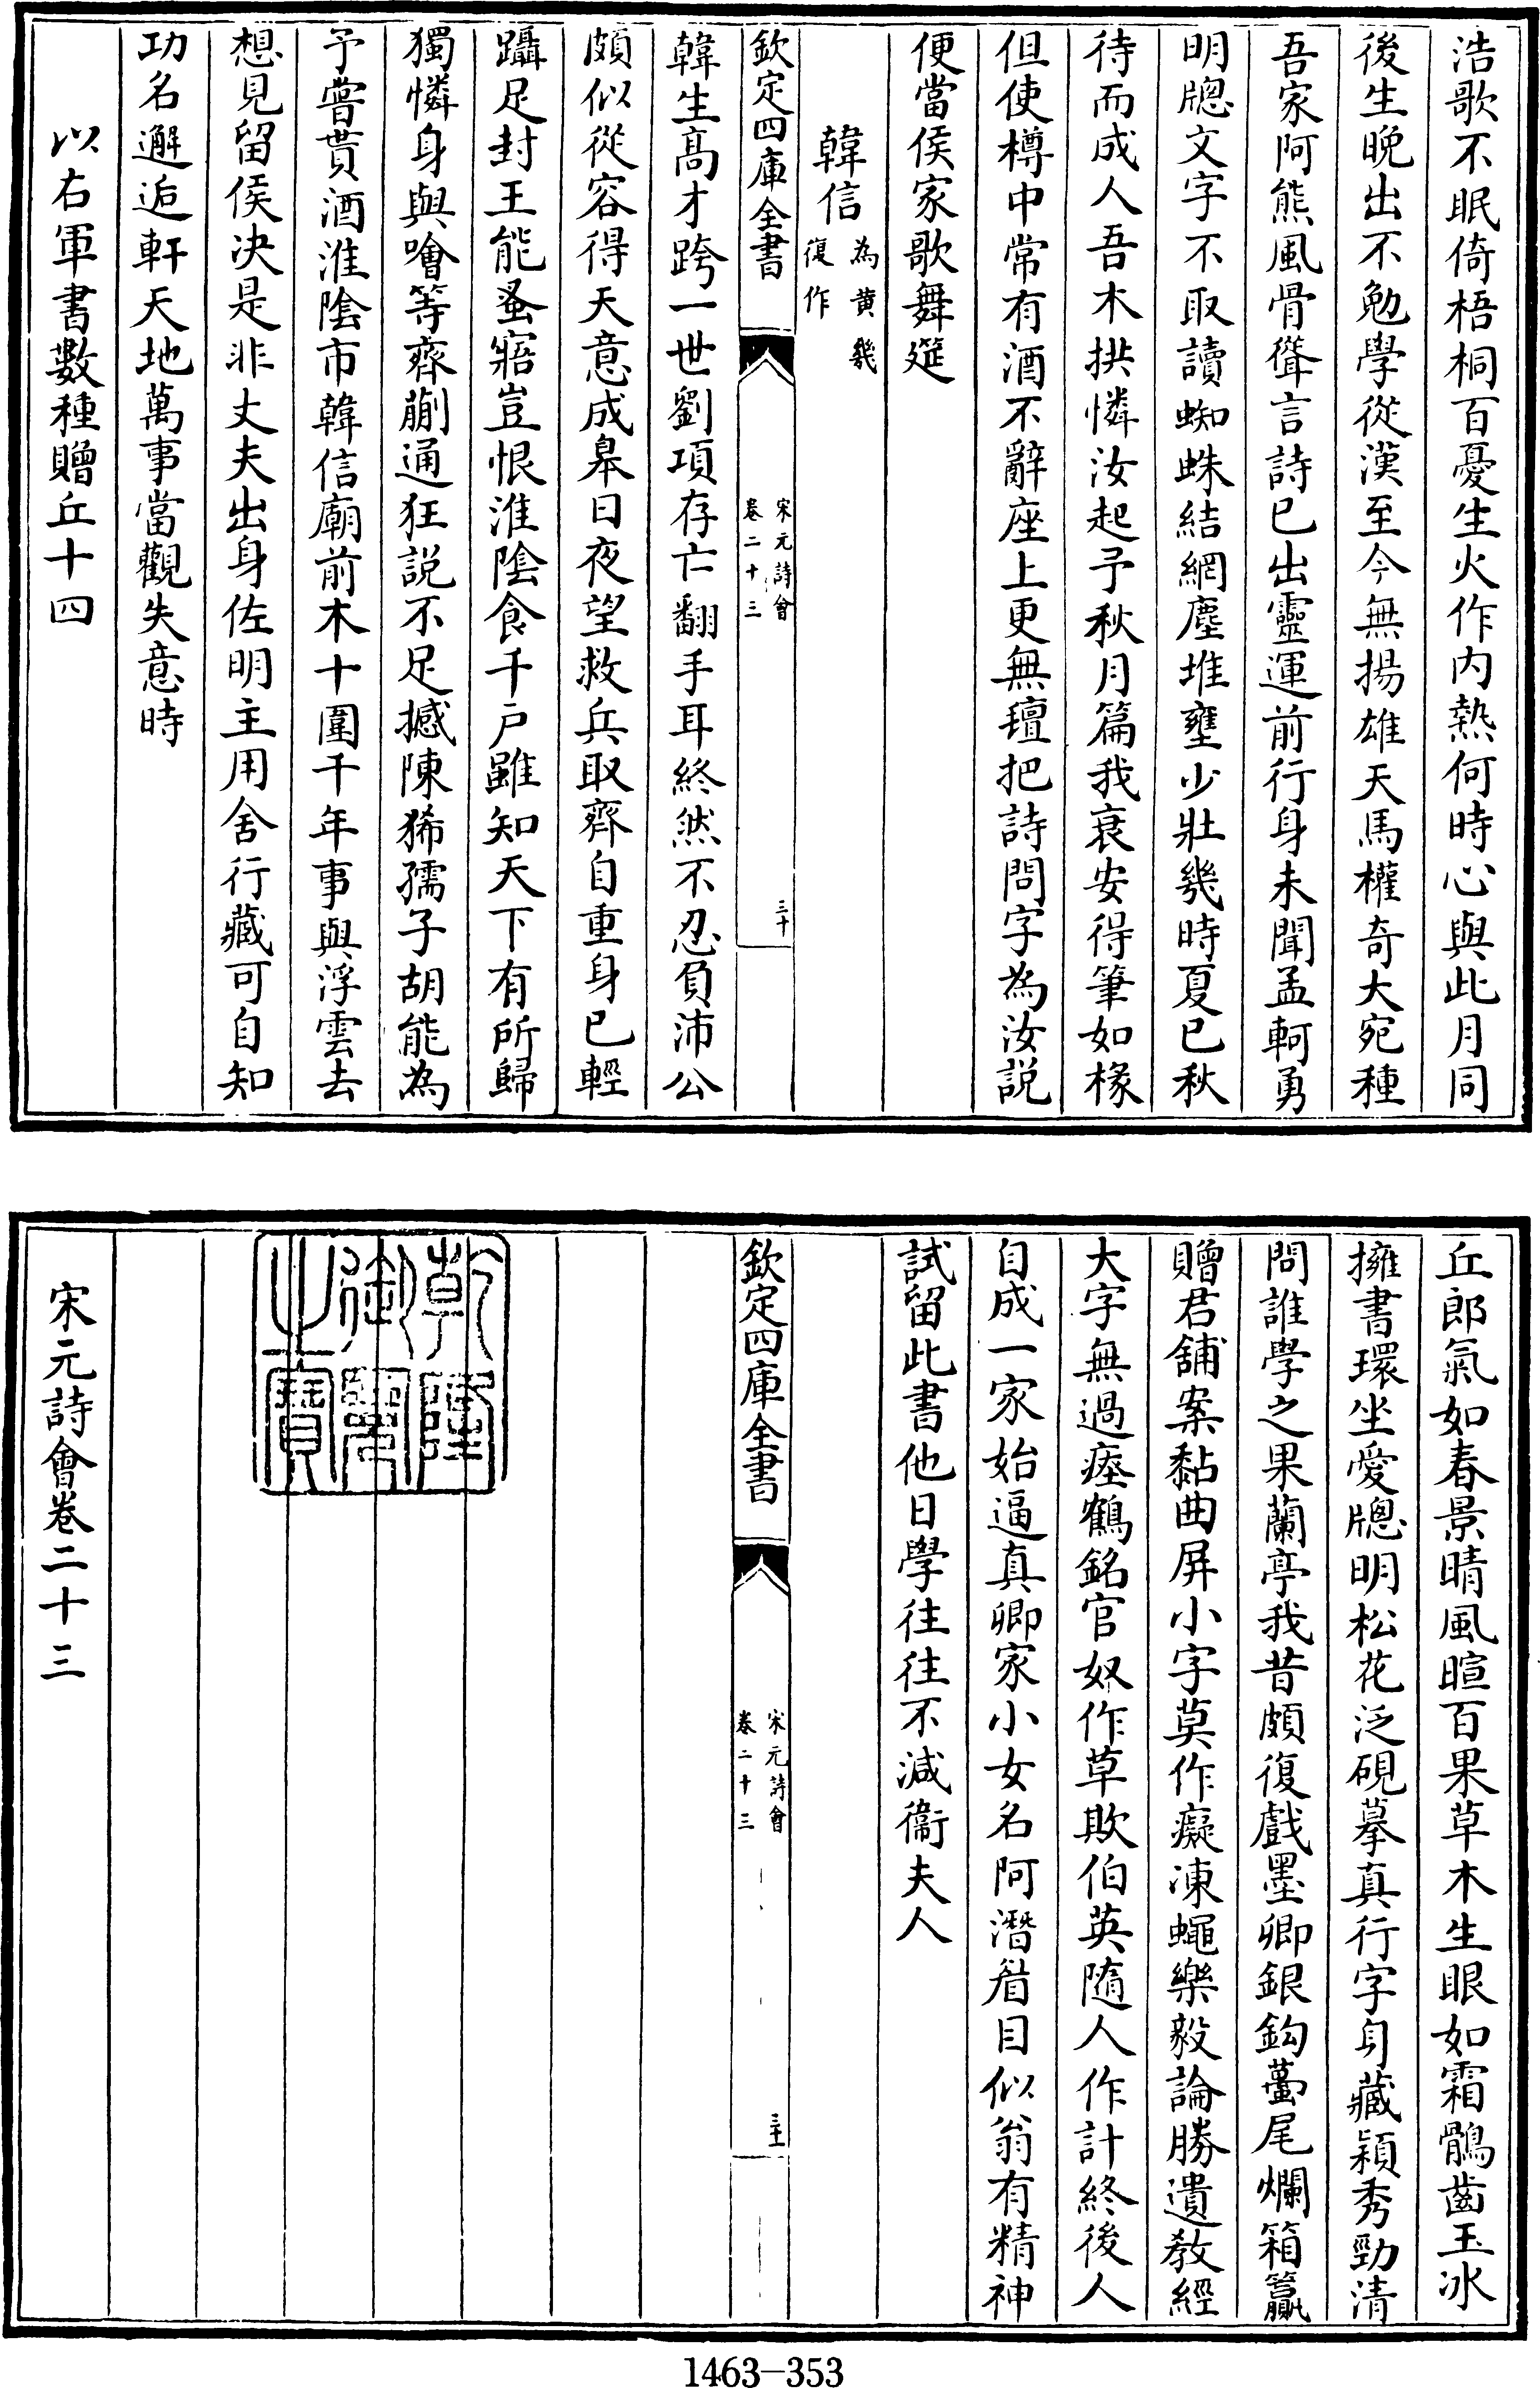 浩歌不眠倚梧桐百憂生火作内熱何時心與此月同
後生晚出不勉學從漢至今無揚雄天馬權奇大宛種
吾家阿熊風骨聳言詩已出靈運前行身未聞孟軻勇
明牎文字不取讀蜘蛛結網塵堆壅少壯幾時夏已秋
待而成人吾木拱憐汝起予秋月篇我衰安得筆如椽
但使樽中常有酒不辭座上更無氊把詩問字為汝說
便當侯家歌舞筵
韓信為黄幾復作
欽定四庫全書
宋元詩會
卷二十三
三十
韓生髙才跨一世劉項存亡翻手耳終然不忍負沛公
頗似從容得天意成皋日夜望救兵取齊自重身已輕
躡足封王能蚤寤豈恨淮陰食千戸雖知天下有所歸
獨憐身與噲等齊蒯通狂說不足撼陳狶孺子胡能為
予嘗貰酒淮陰市韓信廟前木十圍千年事與浮雲去
想見留侯决是非丈夫出身佐明主用舍行藏可自知
功名邂逅軒天地萬事當觀失意時
以右軍書數種贈丘十四
丘郎氣如春景晴風暄百果草木生眼如霜鶻齒玉冰
擁書環坐愛牎明松花泛硯摹真行字身藏穎秀勁清
問誰學之果蘭亭我昔頗復戲墨卿銀鈎蠆尾爛箱籯
贈君舖案黏曲屏小字莫作癡凍蠅樂毅論勝遺教經
大字無過瘞鶴銘官奴作草欺伯英隨人作計終後人
自成一家始逼真卿家小女名阿潛眉目似翁有精神
試留此書他日學往往不減衞夫人
欽定四庫全書
宋元詩會
卷二十三
三十一
乾隆御覽之寶
宋元詩會卷二十三
1463-353